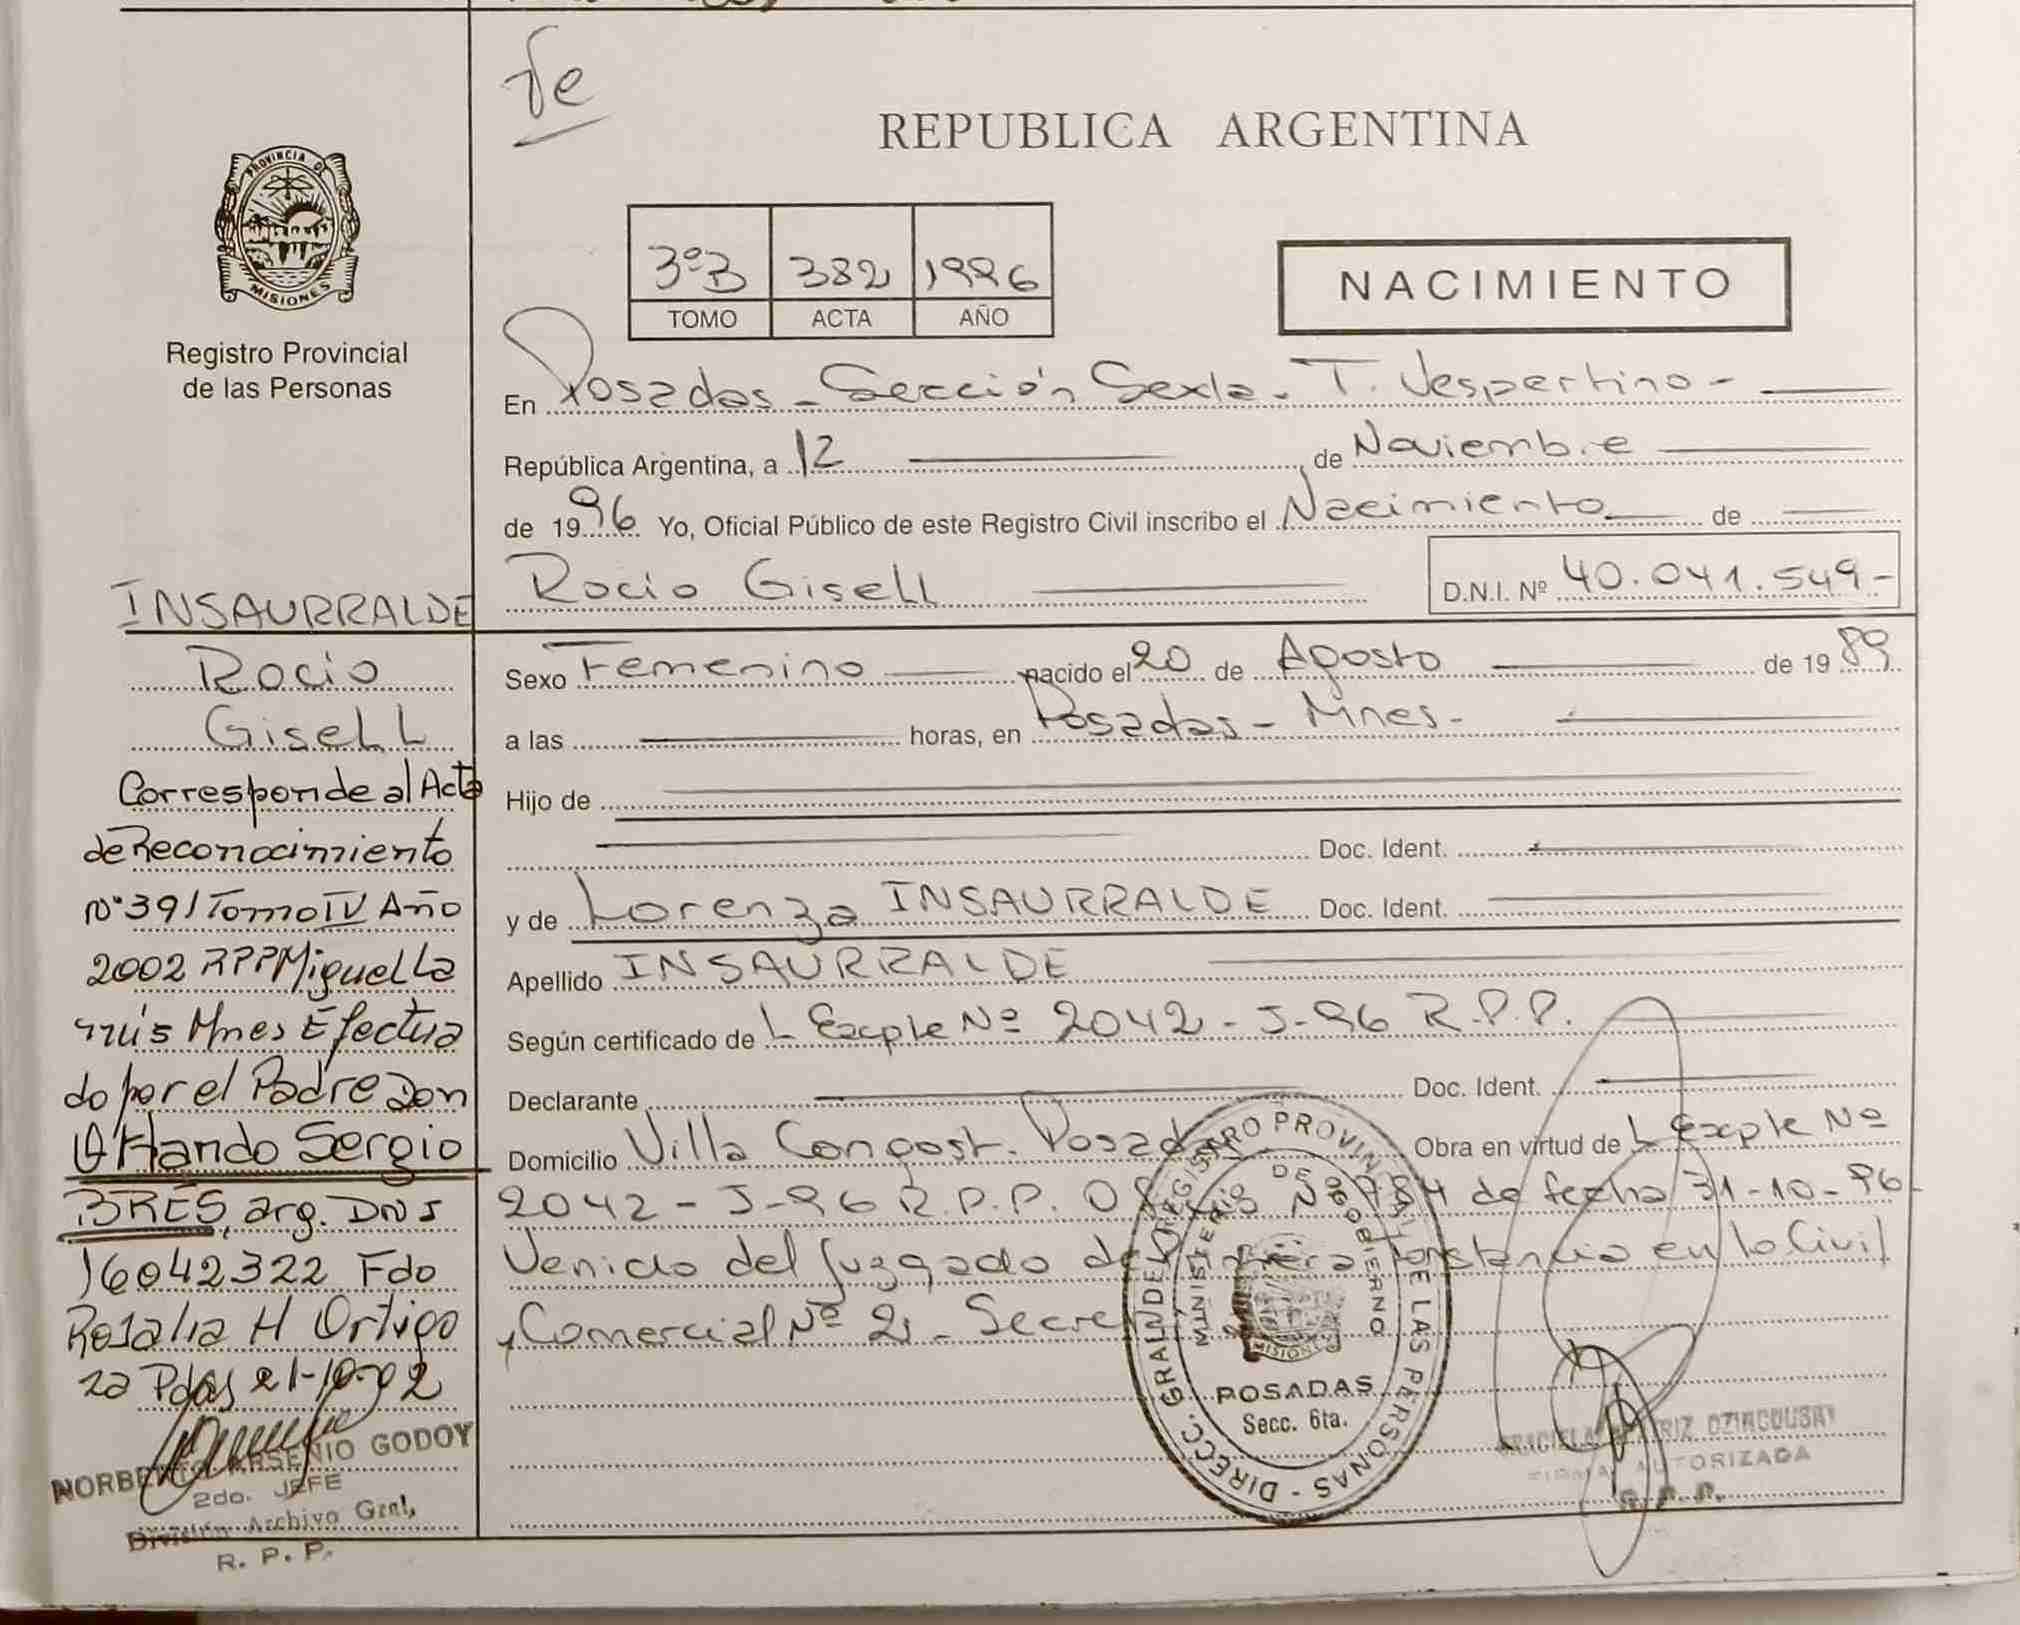 Te
REPUBLICA ARGENTINA
PROVINCIA DE
MISIONES
Registro Provincial
de las Personas
3ºB 382 1996
TOMO ACTA AÑO
NACIMIENTO
En Posadas - Sección Sexta - T. Vespertino -
República Argentina, a 12 de Noviembre
de 1996 Yo, Oficial Público de este Registro Civil inscribo el Nacimiento de
Rocio Gisell D.N.I. Nº 40.041.549-
INSAURRALDE
Rocio
Gisell
Corresponde al Acta
de Reconocimiento
Nº 391 Tomo IV Año
2002 RPP Miguel La
nús Mnes Efectua
do por el Padre Don
Orlando Sergio
BRES, arg. DNI
16042322 Fdo
Rosalia H Ortigo
za Pdas 21-10-02
NORBERTO ARSENIO GODOY
2do. JEFE
División Archivo Gral,
R. P. P.
Sexo Femenino nacido el 20 de Agosto de 1989
a las horas, en Posadas - Mnes -
Hijo de
Doc. Ident.
y de Lorenza INSAURRALDE Doc. Ident.
Apellido INSAURRALDE
Según certificado de L Expte Nº 2042 - J-96 R.P.P.
Declarante Doc. Ident.
Domicilio Villa Congost. Posadas Obra en virtud de L Expte Nº
2042 - J-96 R.P.P. Oficio Nº de fecha 31-10-96
Venido del Juzgado de Primera Instancia en lo Civil
y Comercial Nº 2,
DIRECC. GRAL. DEL REGISTRO PROVINCIAL DE LAS PERSONAS -
MINISTERIO DE GOBIERNO
MISIONES
POSADAS
Secc. 6ta.
GRACIELA BEATRIZ
FIRMA AUTORIZADA
R. P. P.